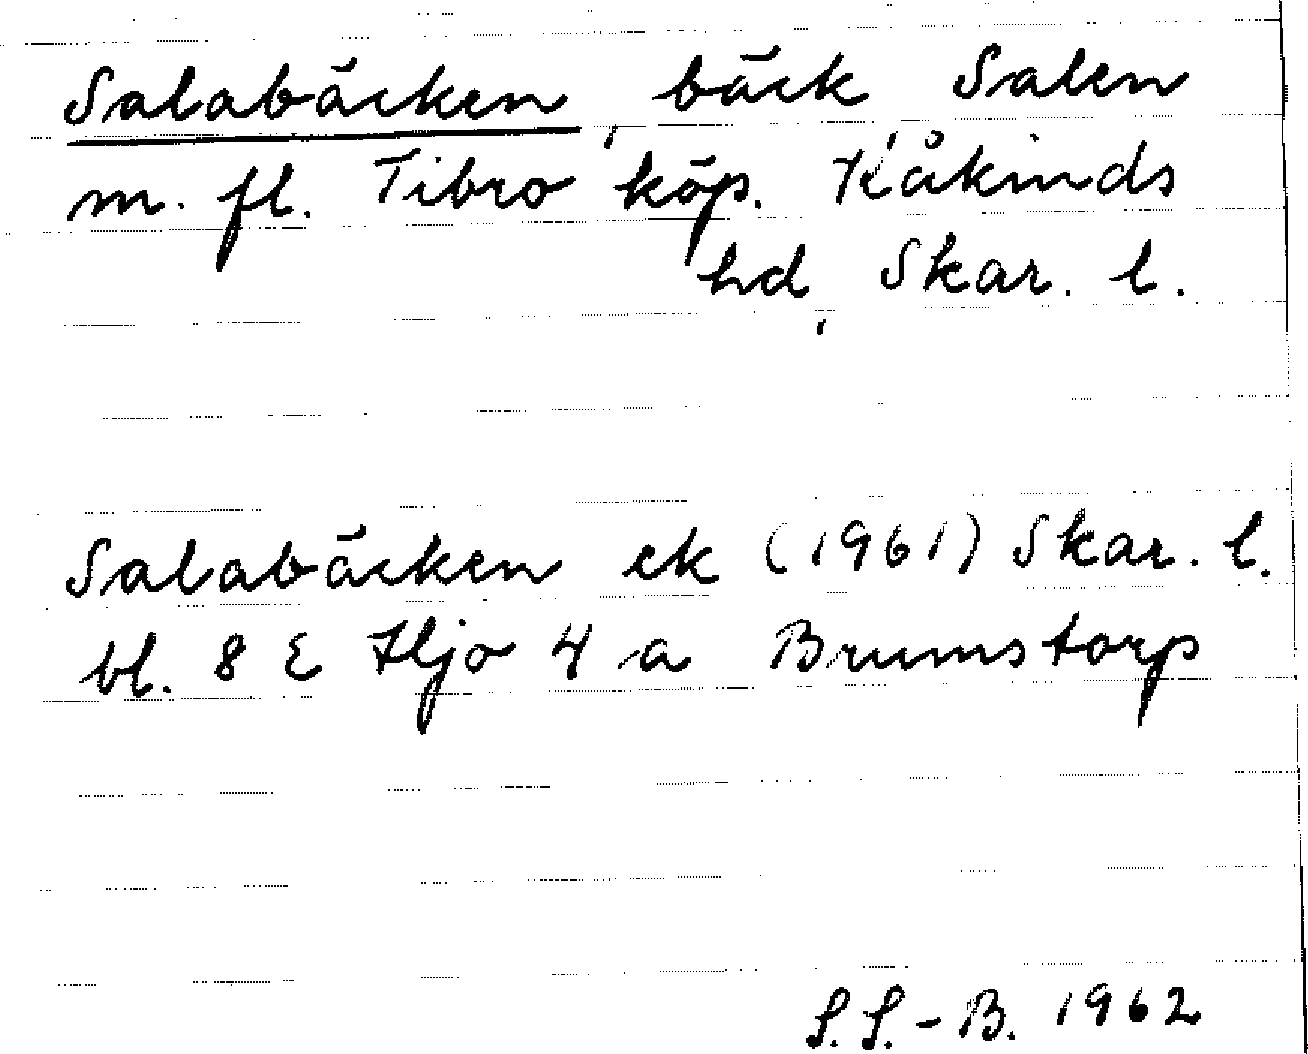 Salabäcken, bäck, Salen
m. fl. Tibro köp. Kåkinds
hd, Skar. l.
Salabäcken ek (1961) Skar. l.
bl. 8 E Hjo 4 a Brumstorp
S.S.-B. 1962